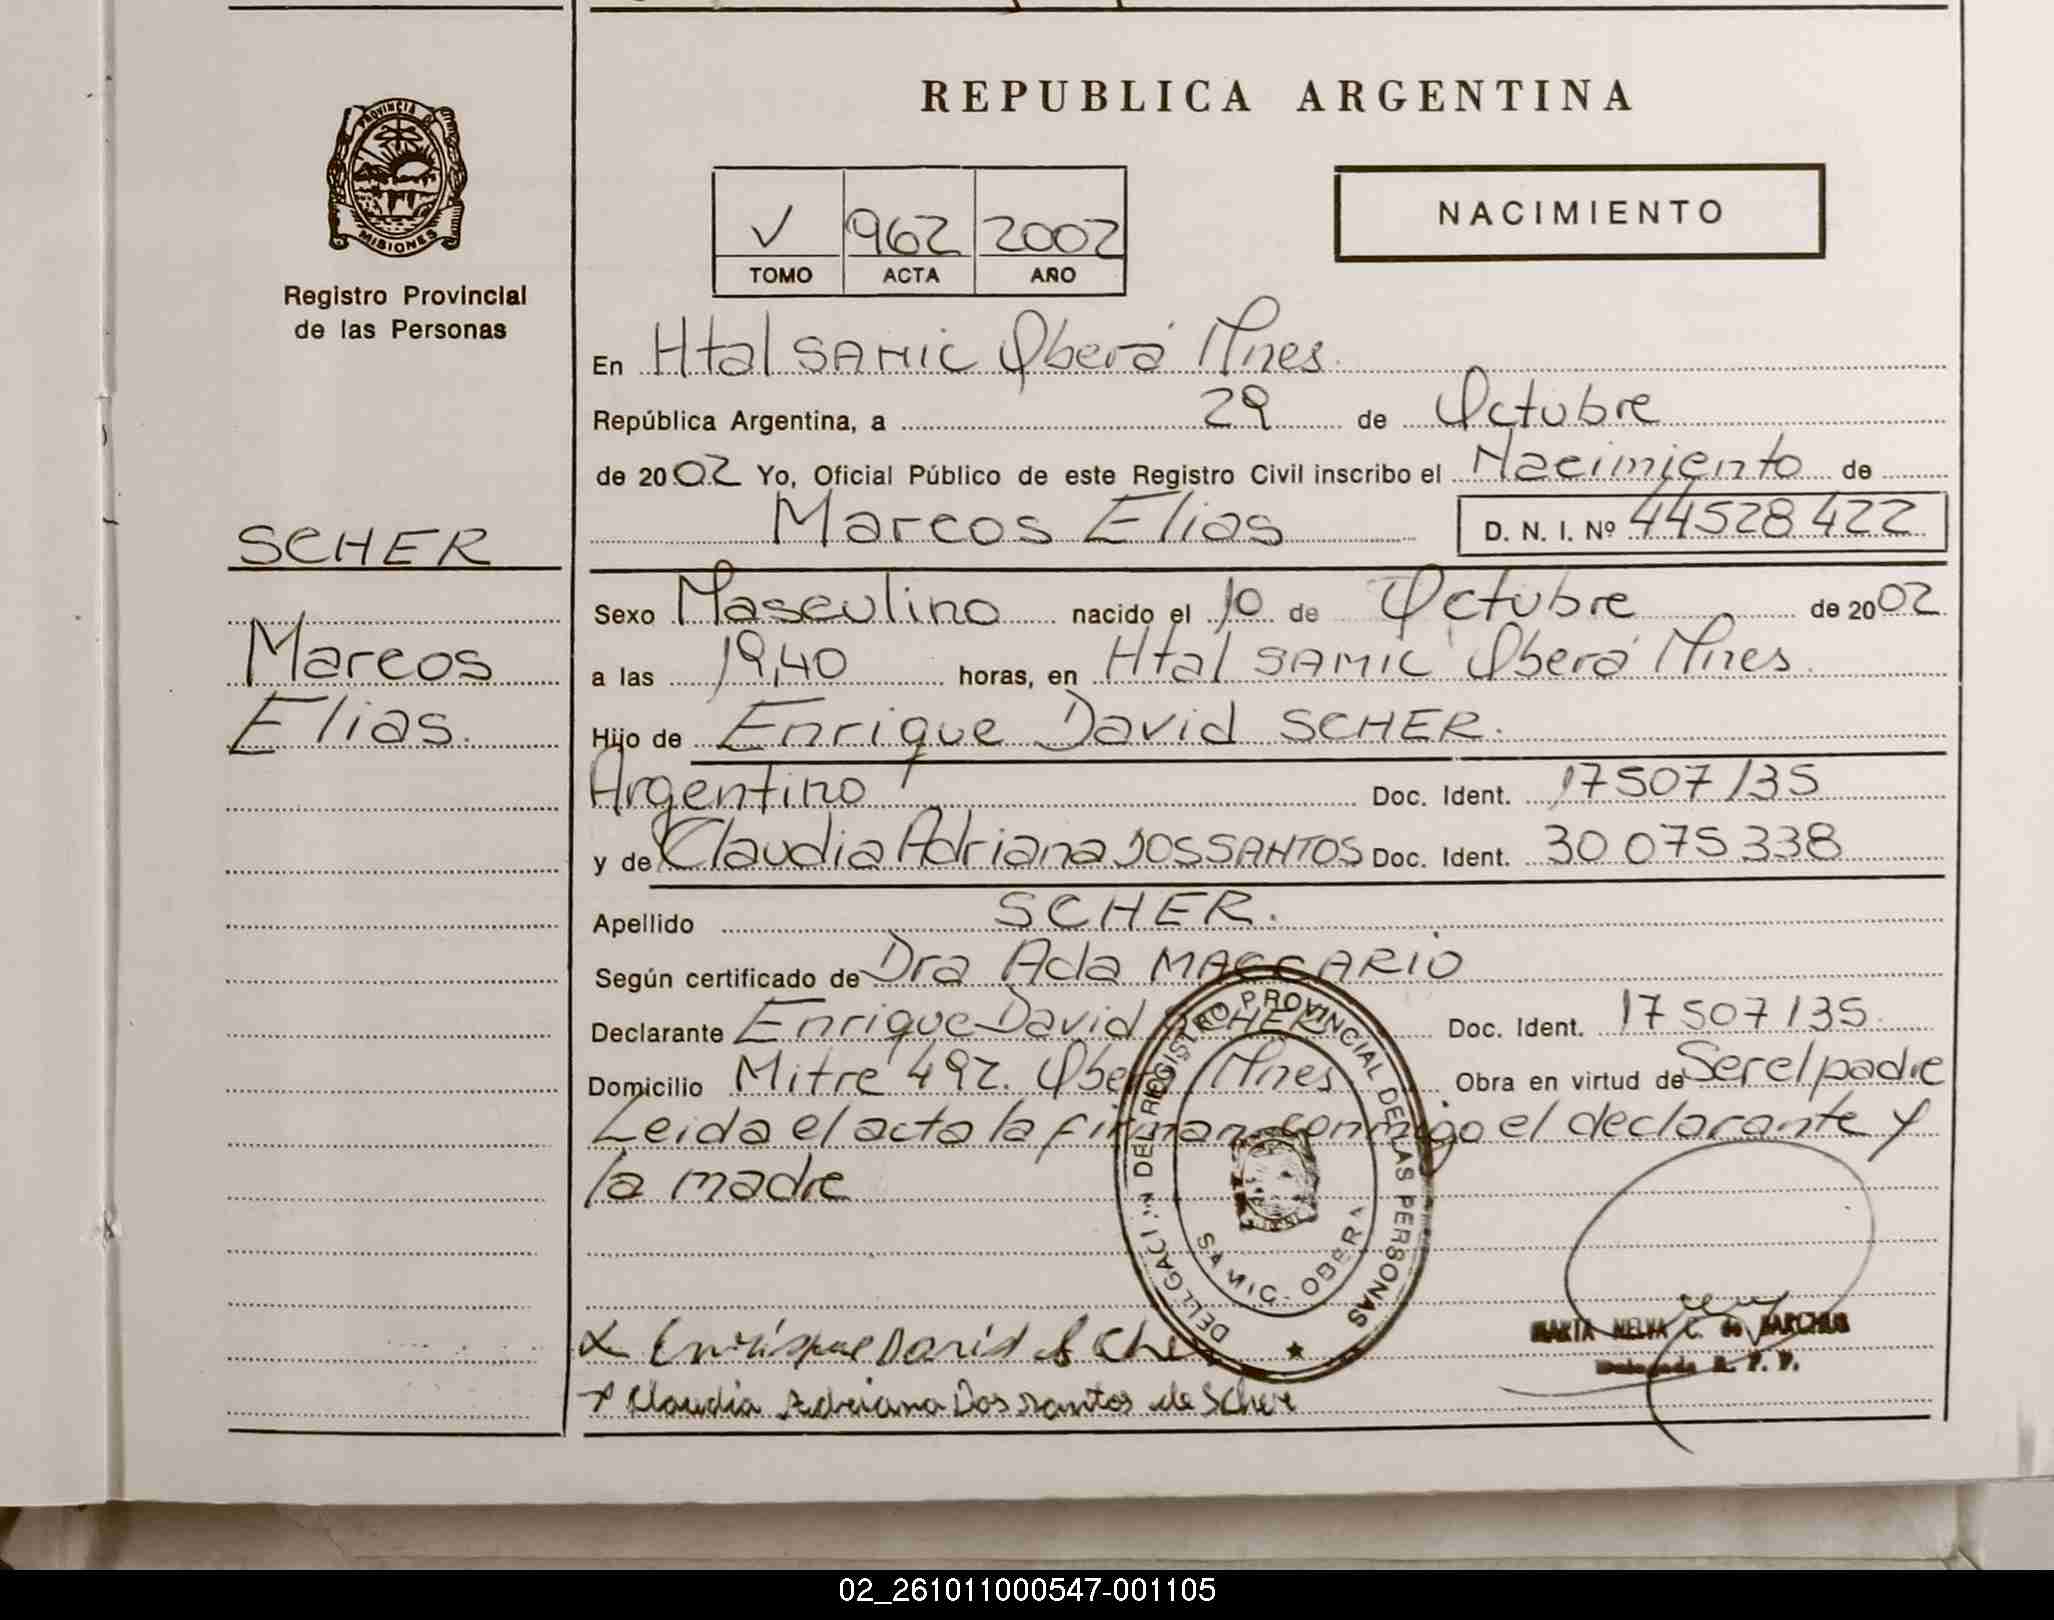 REPUBLICA ARGENTINA
PROVINCIA DE
MISIONES
Registro Provincial
de las Personas
V 962 2002
TOMO ACTA AÑO
NACIMIENTO
En Htal SAMIC Oberá Mnes.
República Argentina, a 29 de Octubre
de 2002 Yo, Oficial Público de este Registro Civil inscribo el Nacimiento de
Marcos Elias D. N. I. Nº 44528422
SCHER
Marcos
Elias.
Sexo Masculino nacido el 10 de Octubre de 2002
a las 19,40 horas, en Htal SAMIC Oberá Mnes.
Hijo de Enrique David SCHER.
Argentino Doc. Ident. 17507135
y de Claudia Adriana DOSSANTOS Doc. Ident. 30 075 338
Apellido SCHER.
Según certificado de Dra Ada MACCARIO
Declarante Enrique David SCHER Doc. Ident. 17507135
Domicilio Mitre 492. Oberá Mnes Obra en virtud de Ser el padre
Leida el acta la firman conmigo el declarante y
la madre
DEL REGISTRO PROVINCIAL DE LAS PERSONAS
SAMIC - OBERA
Enrique David Scher
Claudia Adriana Dos santos de Scher
MARTA NELVA C. de
Delegada R. P. P.
02_261011000547-001105